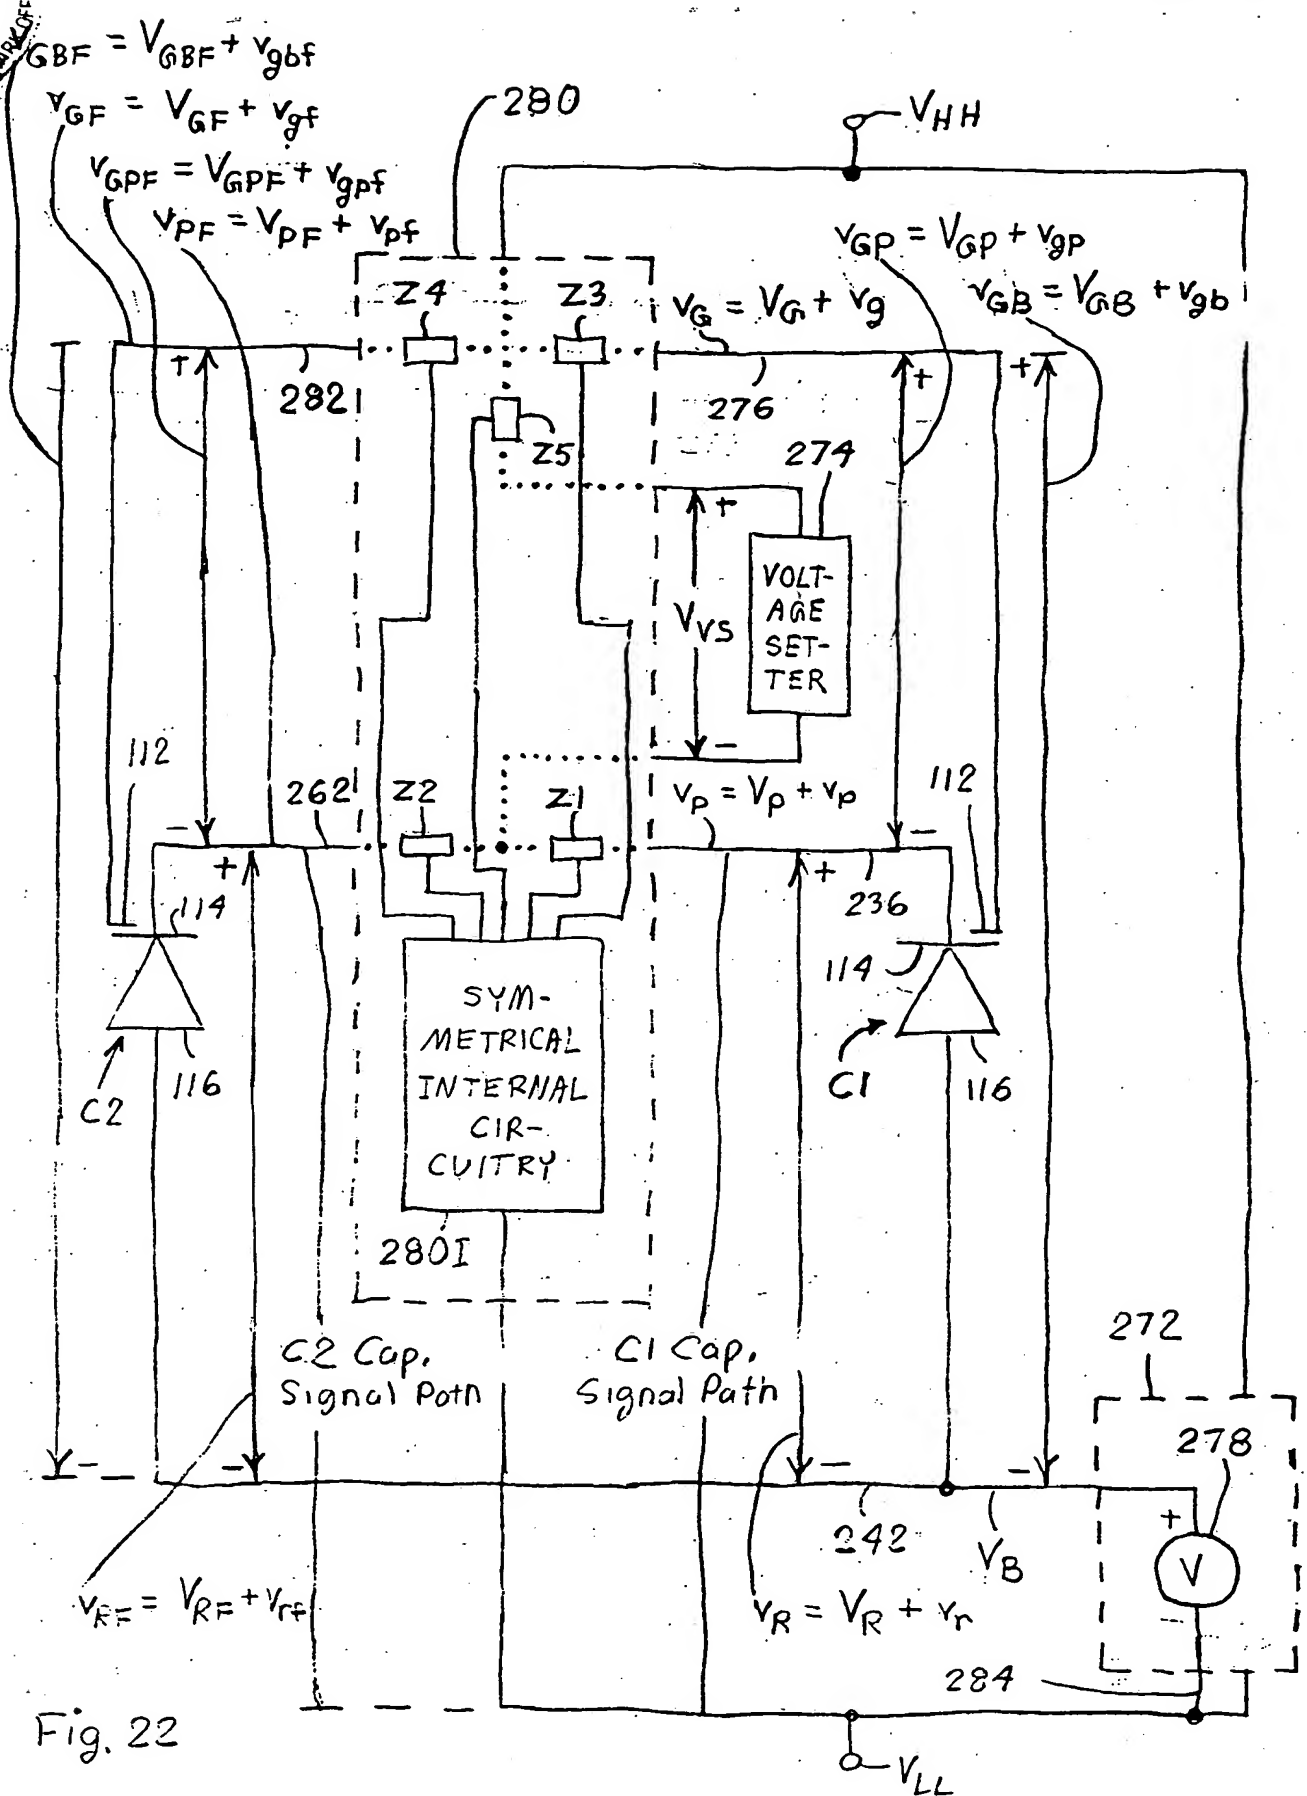 GBF = VGBF + vgbf
vGF = VGF + vgf
vGPF = VGPF + vgpf
vPF = VPF + vpf
280
VHH
vGP = VGP + vgp
vGB = VGB + vgb
Z4
Z3
vG = VG + vg
+
282
+
+
276
Z5
274
+
VVS
VOLT-
AGE
SET-
TER
-
112
262
Z2
Z1
vP = VP + vp
112
-
+
-
+
236
114
114
C2
116
C1
116
SYM-
METRICAL
INTERNAL
CIR-
CUITRY
280I
C2 Cap.
Signal Path
C1 Cap.
Signal Path
272
278
-
-
-
-
+
V
242
VB
vRF = VRF + vrf
vR = VR + vr
284
Fig. 22
VLL